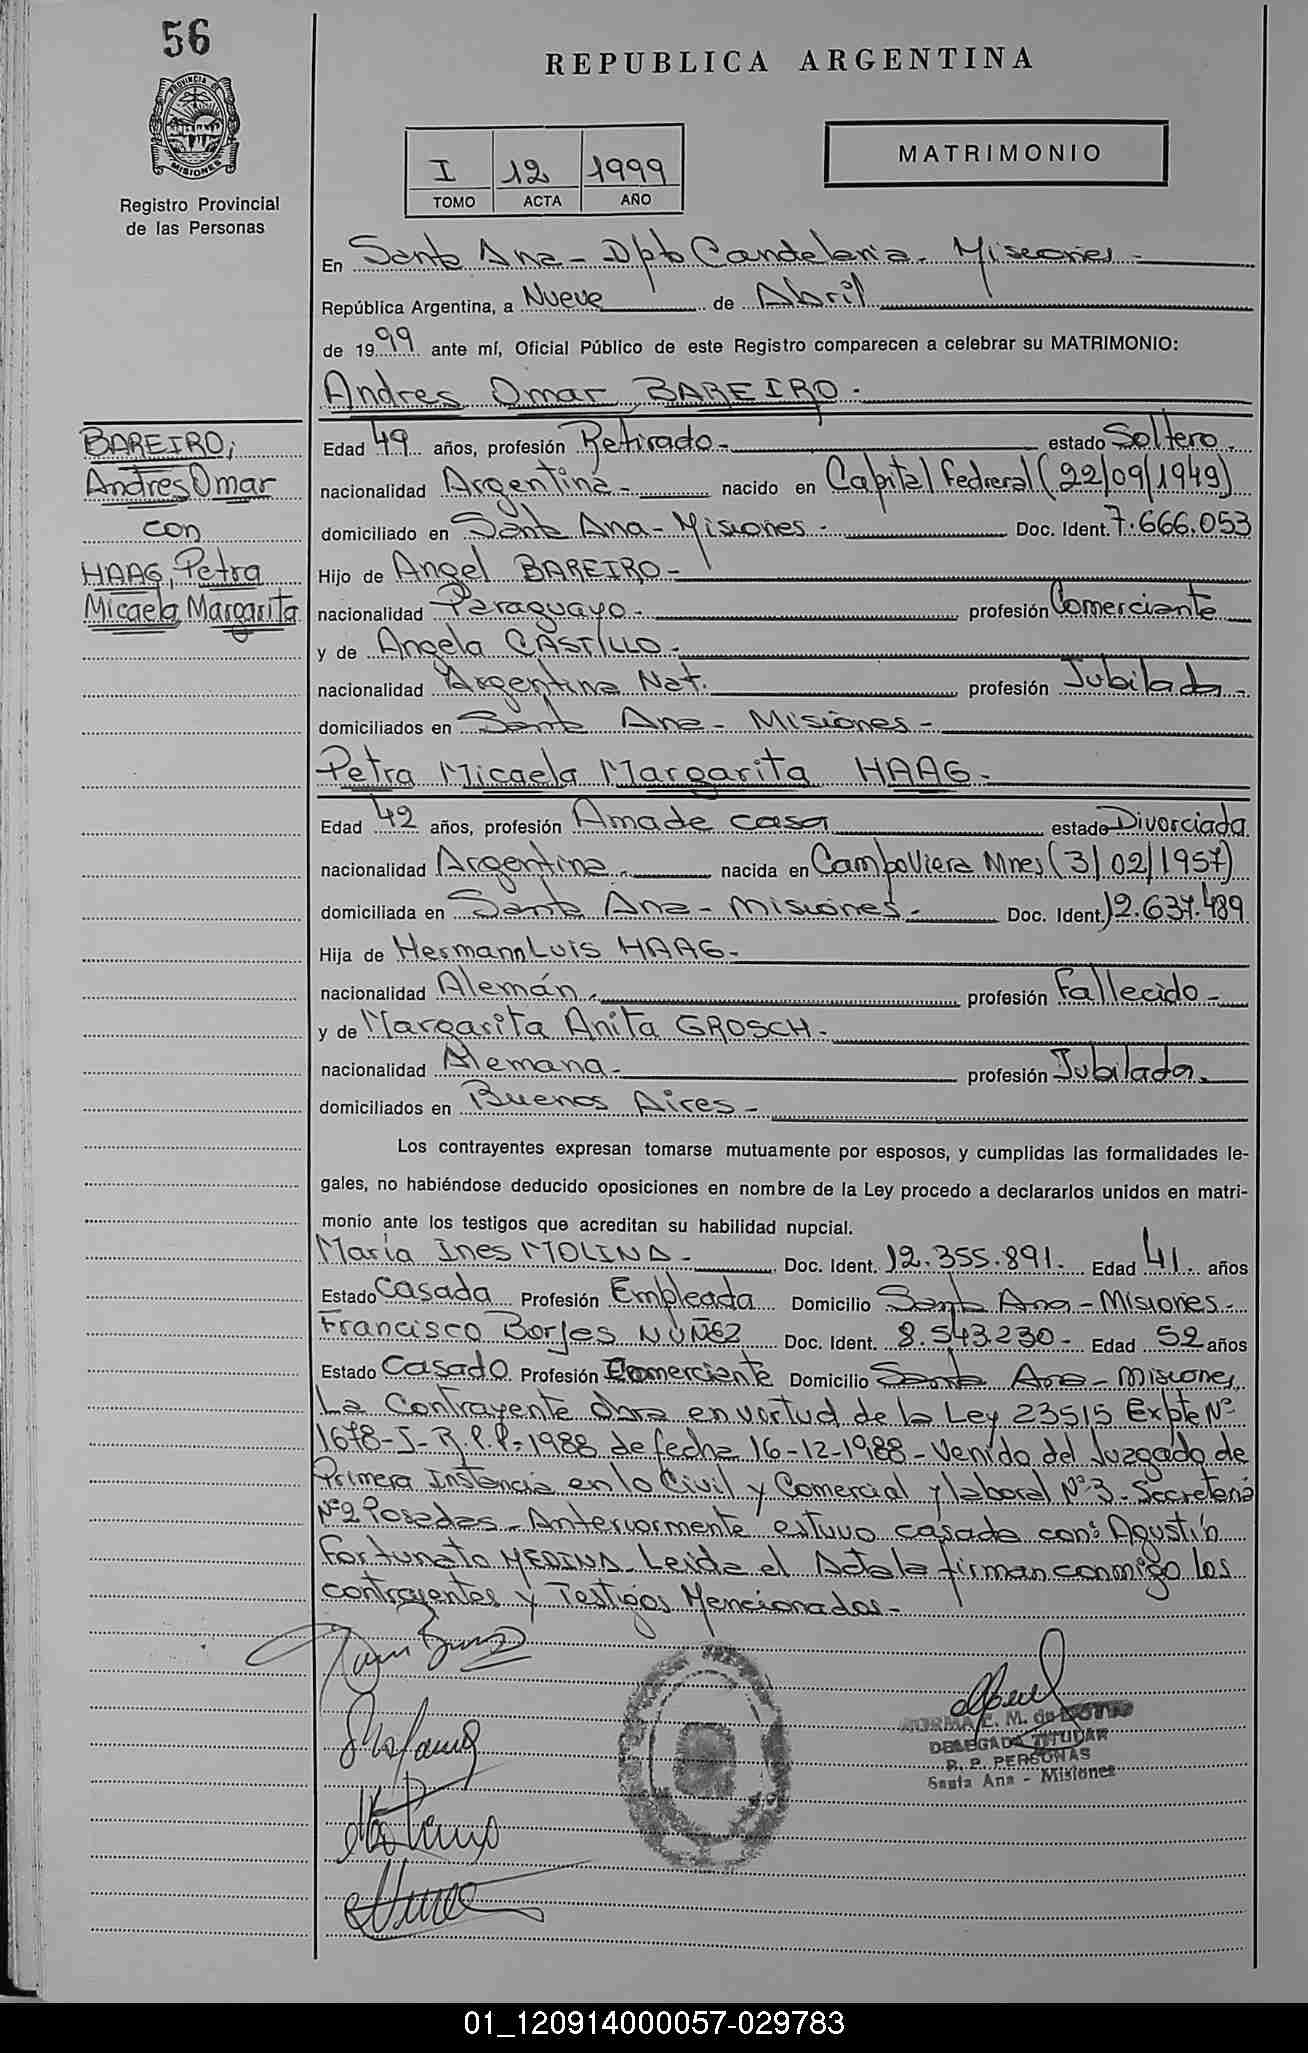 56
PROVINCIA DE
MISIONES
Registro Provincial
de las Personas
REPUBLICA ARGENTINA
I 12 1999
TOMO ACTA AÑO
MATRIMONIO
En Santa Ana - Dpto Candelaria. Misiones -
República Argentina, a Nueve de Abril
de 1999 ante mí, Oficial Público de este Registro comparecen a celebrar su MATRIMONIO:
Andres Omar BAREIRO.
BAREIRO;
Andres Omar
con
HAAG, Petra
Micaela Margarita
Edad 49 años, profesión Retirado.- estado Soltero.
nacionalidad Argentina.- nacido en Capital Federal (22/09/1949)
domiciliado en Santa Ana - Misiones - Doc. Ident. 7.666.053
Hijo de Angel BAREIRO -
nacionalidad Paraguayo - profesión Comerciante
y de Angela CASTILLO -
nacionalidad Argentina Nat. profesión Jubilada -
domiciliados en Santa Ana - Misiones -
Petra Micaela Margarita HAAG -
Edad 42 años, profesión Ama de casa estado Divorciada
nacionalidad Argentina.- nacida en Campo Viera Mnes (3/02/1957)
domiciliada en Santa Ana - Misiones - Doc. Ident. 12.637.489
Hija de Hermann Luis HAAG -
nacionalidad Alemán - profesión Fallecido -
y de Margarita Anita GROSCH -
nacionalidad Alemana - profesión Jubilada.
domiciliados en Buenos Aires -
Los contrayentes expresan tomarse mutuamente por esposos, y cumplidas las formalidades le-
gales, no habiéndose deducido oposiciones en nombre de la Ley procedo a declararlos unidos en matri-
monio ante los testigos que acreditan su habilidad nupcial.
María Ines MOLINA - Doc. Ident. 12.355.891. Edad 41 años
Estado Casada Profesión Empleada Domicilio Santa Ana - Misiones -
Francisco Borjes NUÑEZ Doc. Ident. 8.543.230 - Edad 52 años
Estado Casado Profesión Comerciante Domicilio Santa Ana - Misiones
La Contrayente obra en virtud de la Ley 23515 Expte Nº
1678-J-R.P.P-1988 de fecha 16-12-1988 - Venido del Juzgado de
Primera Instancia en lo Civil y Comercial y laboral Nº 3 - Secretaria
Nº 2 Posadas - Anteriormente estuvo casada con: Agustín
Fortunato MEDINA. Leída el Acta la firman conmigo los
contrayentes y Testigos Mencionados -
NORMA E. M. de
DELEGADA TITULAR
R. P. PERSONAS
Santa Ana - Misiones
01_120914000057-029783